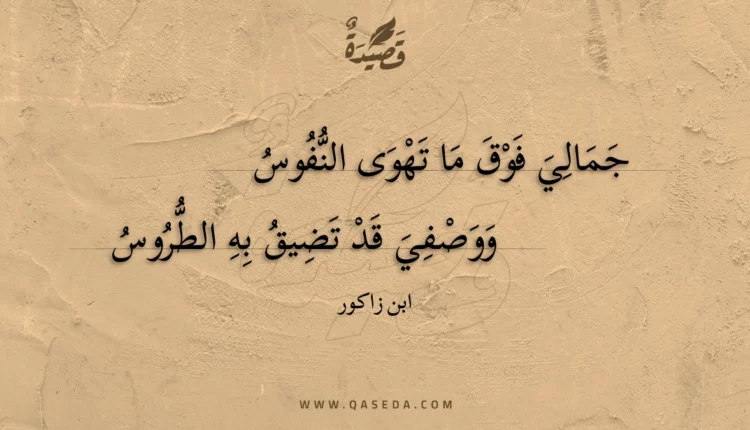 قَصِيدَةٌ
جَمَالِيَ فَوْقَ مَا تَهْوَى النُّفُوسُ
وَوَصْفِيَ قَدْ تَضِيقُ بِهِ الطُّرُوسُ
ابن زاكور
WWW.QASEDA.COM